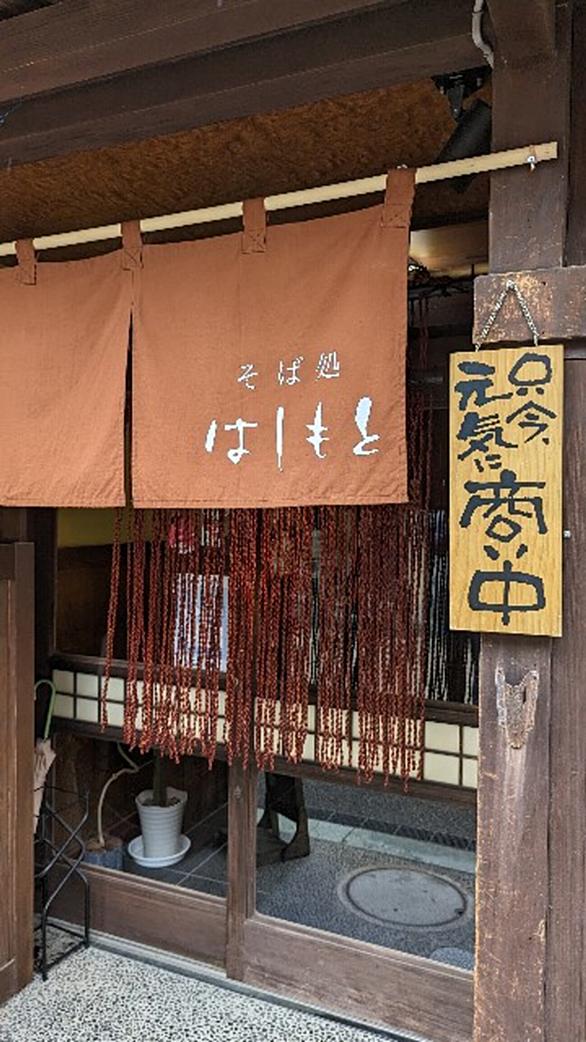 そば処
はしもと
只今、
元気に
商い中